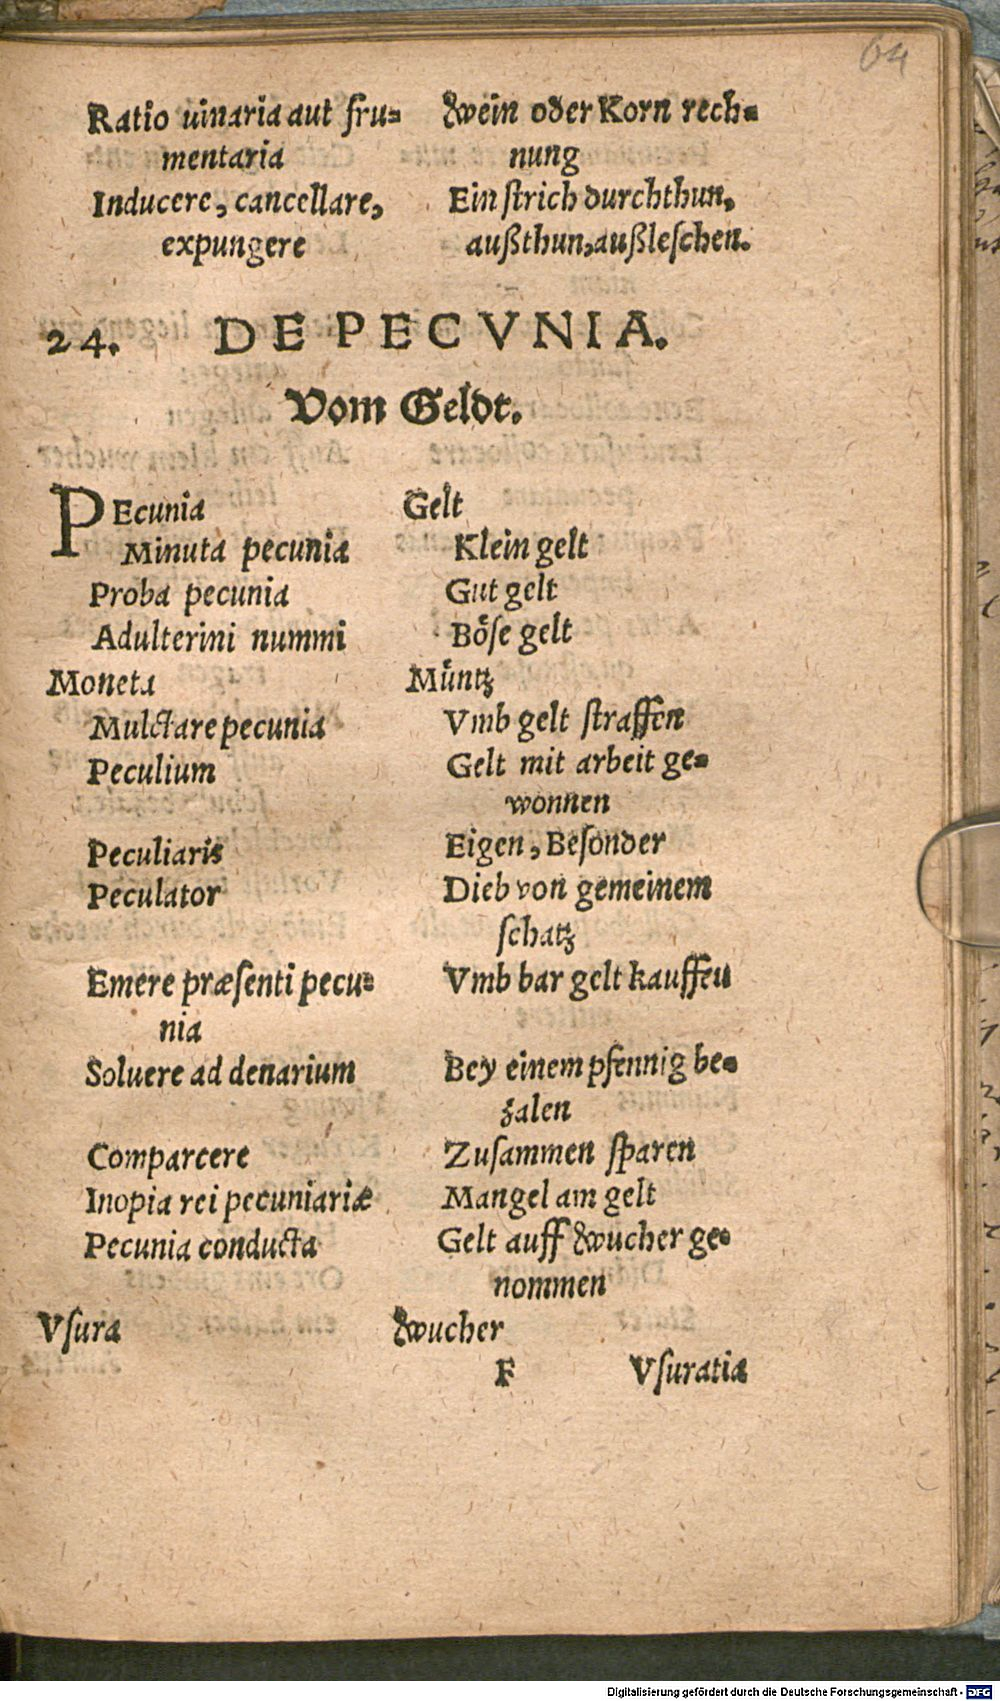 64
Ratio uinaria aut fru= Wein oder Korn rech=
mentaria nung
Inducere, cancellare, Ein ſtrich durchthun,
expungere außthun, außleſchen.
24. DE PECVNIA.
Vom Geldt.
PEcunia Gelt
Minuta pecunia Klein gelt
Proba pecunia Gut gelt
Adulterini nummi Böſe gelt
Moneta Müntz
Mulctare pecunia Vmb gelt ſtraffen
Peculium Gelt mit arbeit ge=
wonnen
Peculiaris Eigen, Beſonder
Peculator Dieb von gemeinem
ſchatz
Emere præſenti pecu= Vmb bar gelt kauffen
nia
Soluere ad denarium Bey einem pfennig be=
zalen
Comparcere Zuſammen ſparen
Inopia rei pecuniariæ Mangel am gelt
Pecunia conducta Gelt auff Wucher ge=
nommen
Vſura Wucher
F Vſuratia
Digitalisierung gefördert durch die Deutsche Forschungsgemeinschaft - DFG